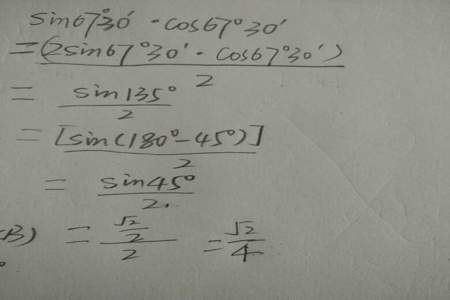 sin67°30′ · cos67°30′
= (2sin67°30′ · cos67°30′) / 2
= sin135° / 2
= [sin(180°-45°)] / 2
= sin45° / 2.
B) = (√2/2) / 2 = √2/4